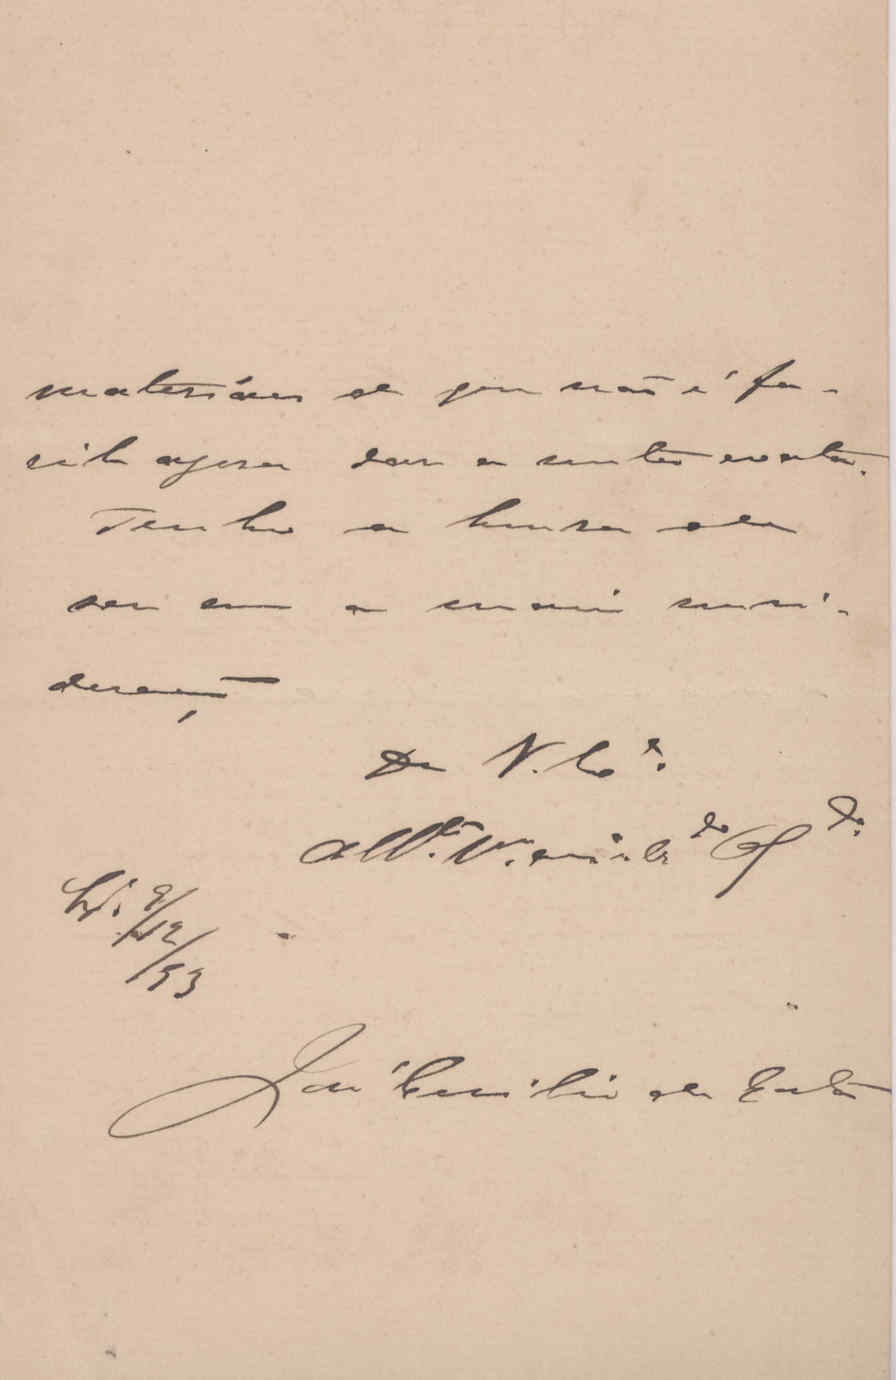 materiáes de que não é fa-
cil agora dar a conta exacta.
Tenho a honra de
ser com a maior consi-
deração
De V. Ex.ª
Att.º V.
9/12
/93
José Emilio de